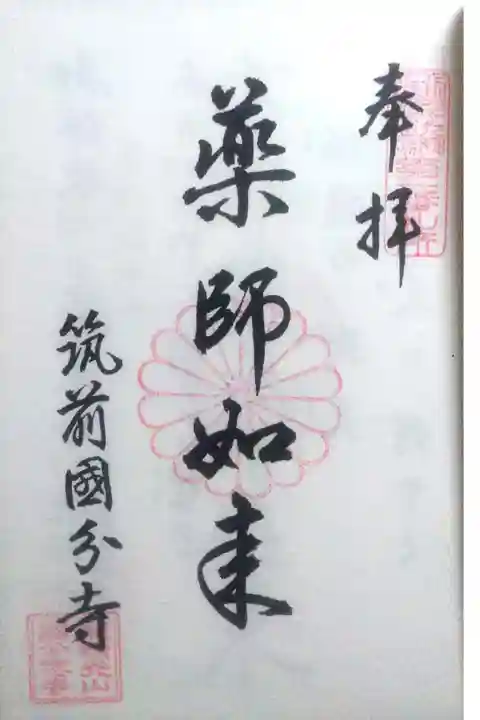 奉拝
薬師如来
筑前國分寺